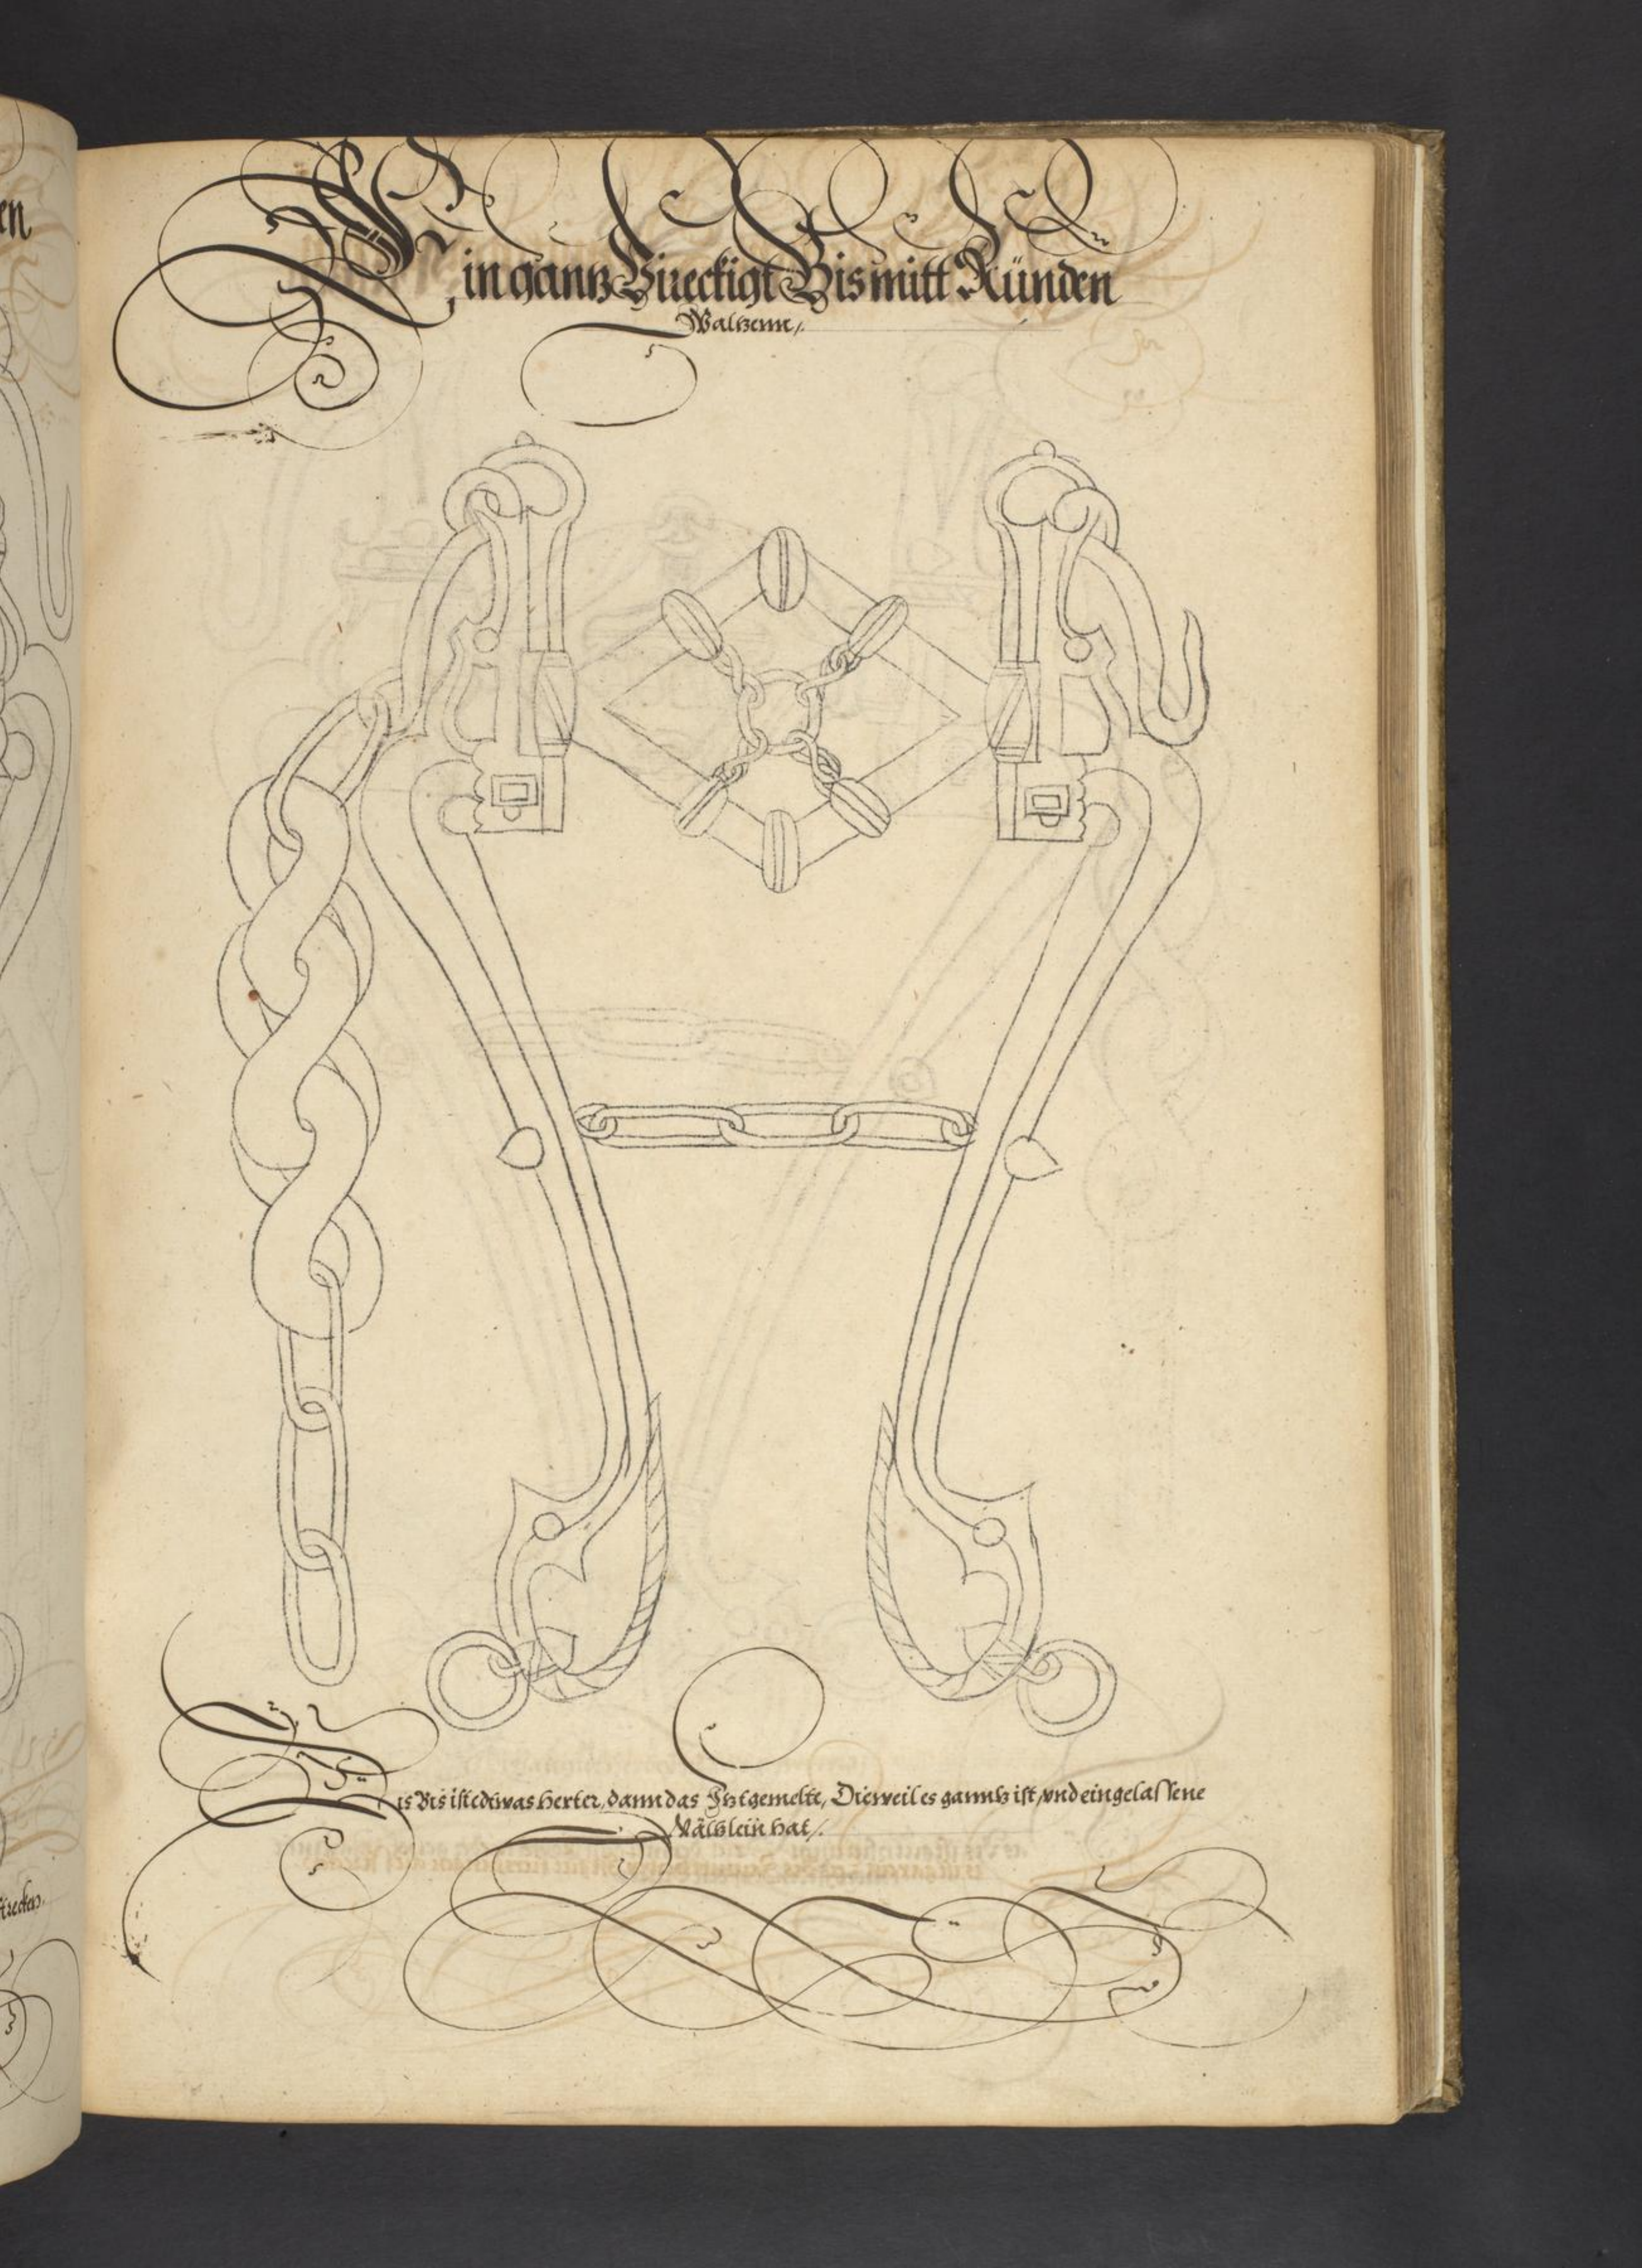 Ein gantz Viereckigt Bis mitt Ründen
Waltzenn /.
Dis Bis ist edtwas herter, dann das Itztgemelte, Dieweil es ganntz ist, vnd eingelassene
Wältzlein hat /.
en
strecken.